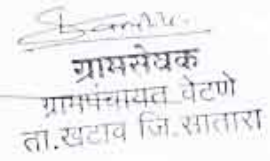 ग्रामसेवक
ग्रामपंचायत वेटणे
ता.खटाव जि.सातारा